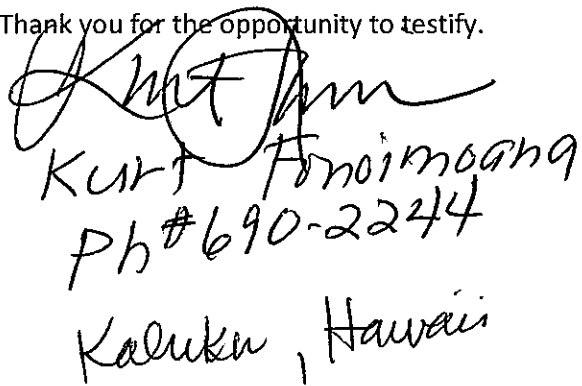 Thank you for the opportunity to testify.
Kurt Fonoimoana
Ph# 690-2244
Kahuku, Hawaii